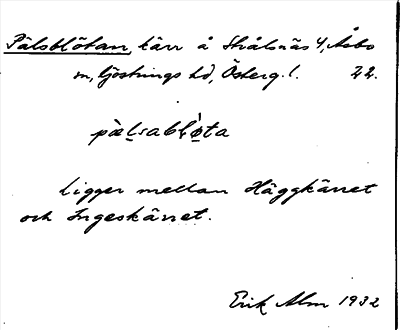 Pälsblötan, kärr å Strålsnäs 4, Åsbo
sn, Göstrings hd, Österg. l. 22.
pæ̀lsablø̀ta
Ligger mellan Häggkärret
och Ingeskärret.
Erik Alm 1932